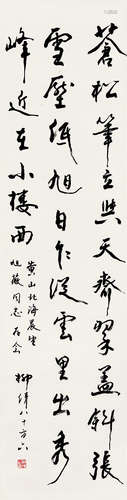 蒼松筆立與天齊翠蓋斜張
雪壓低旭日乍從雲里出秀
峰近在小樓西
黄山北海晨望
旭薇同志存念
柳倩八十有六